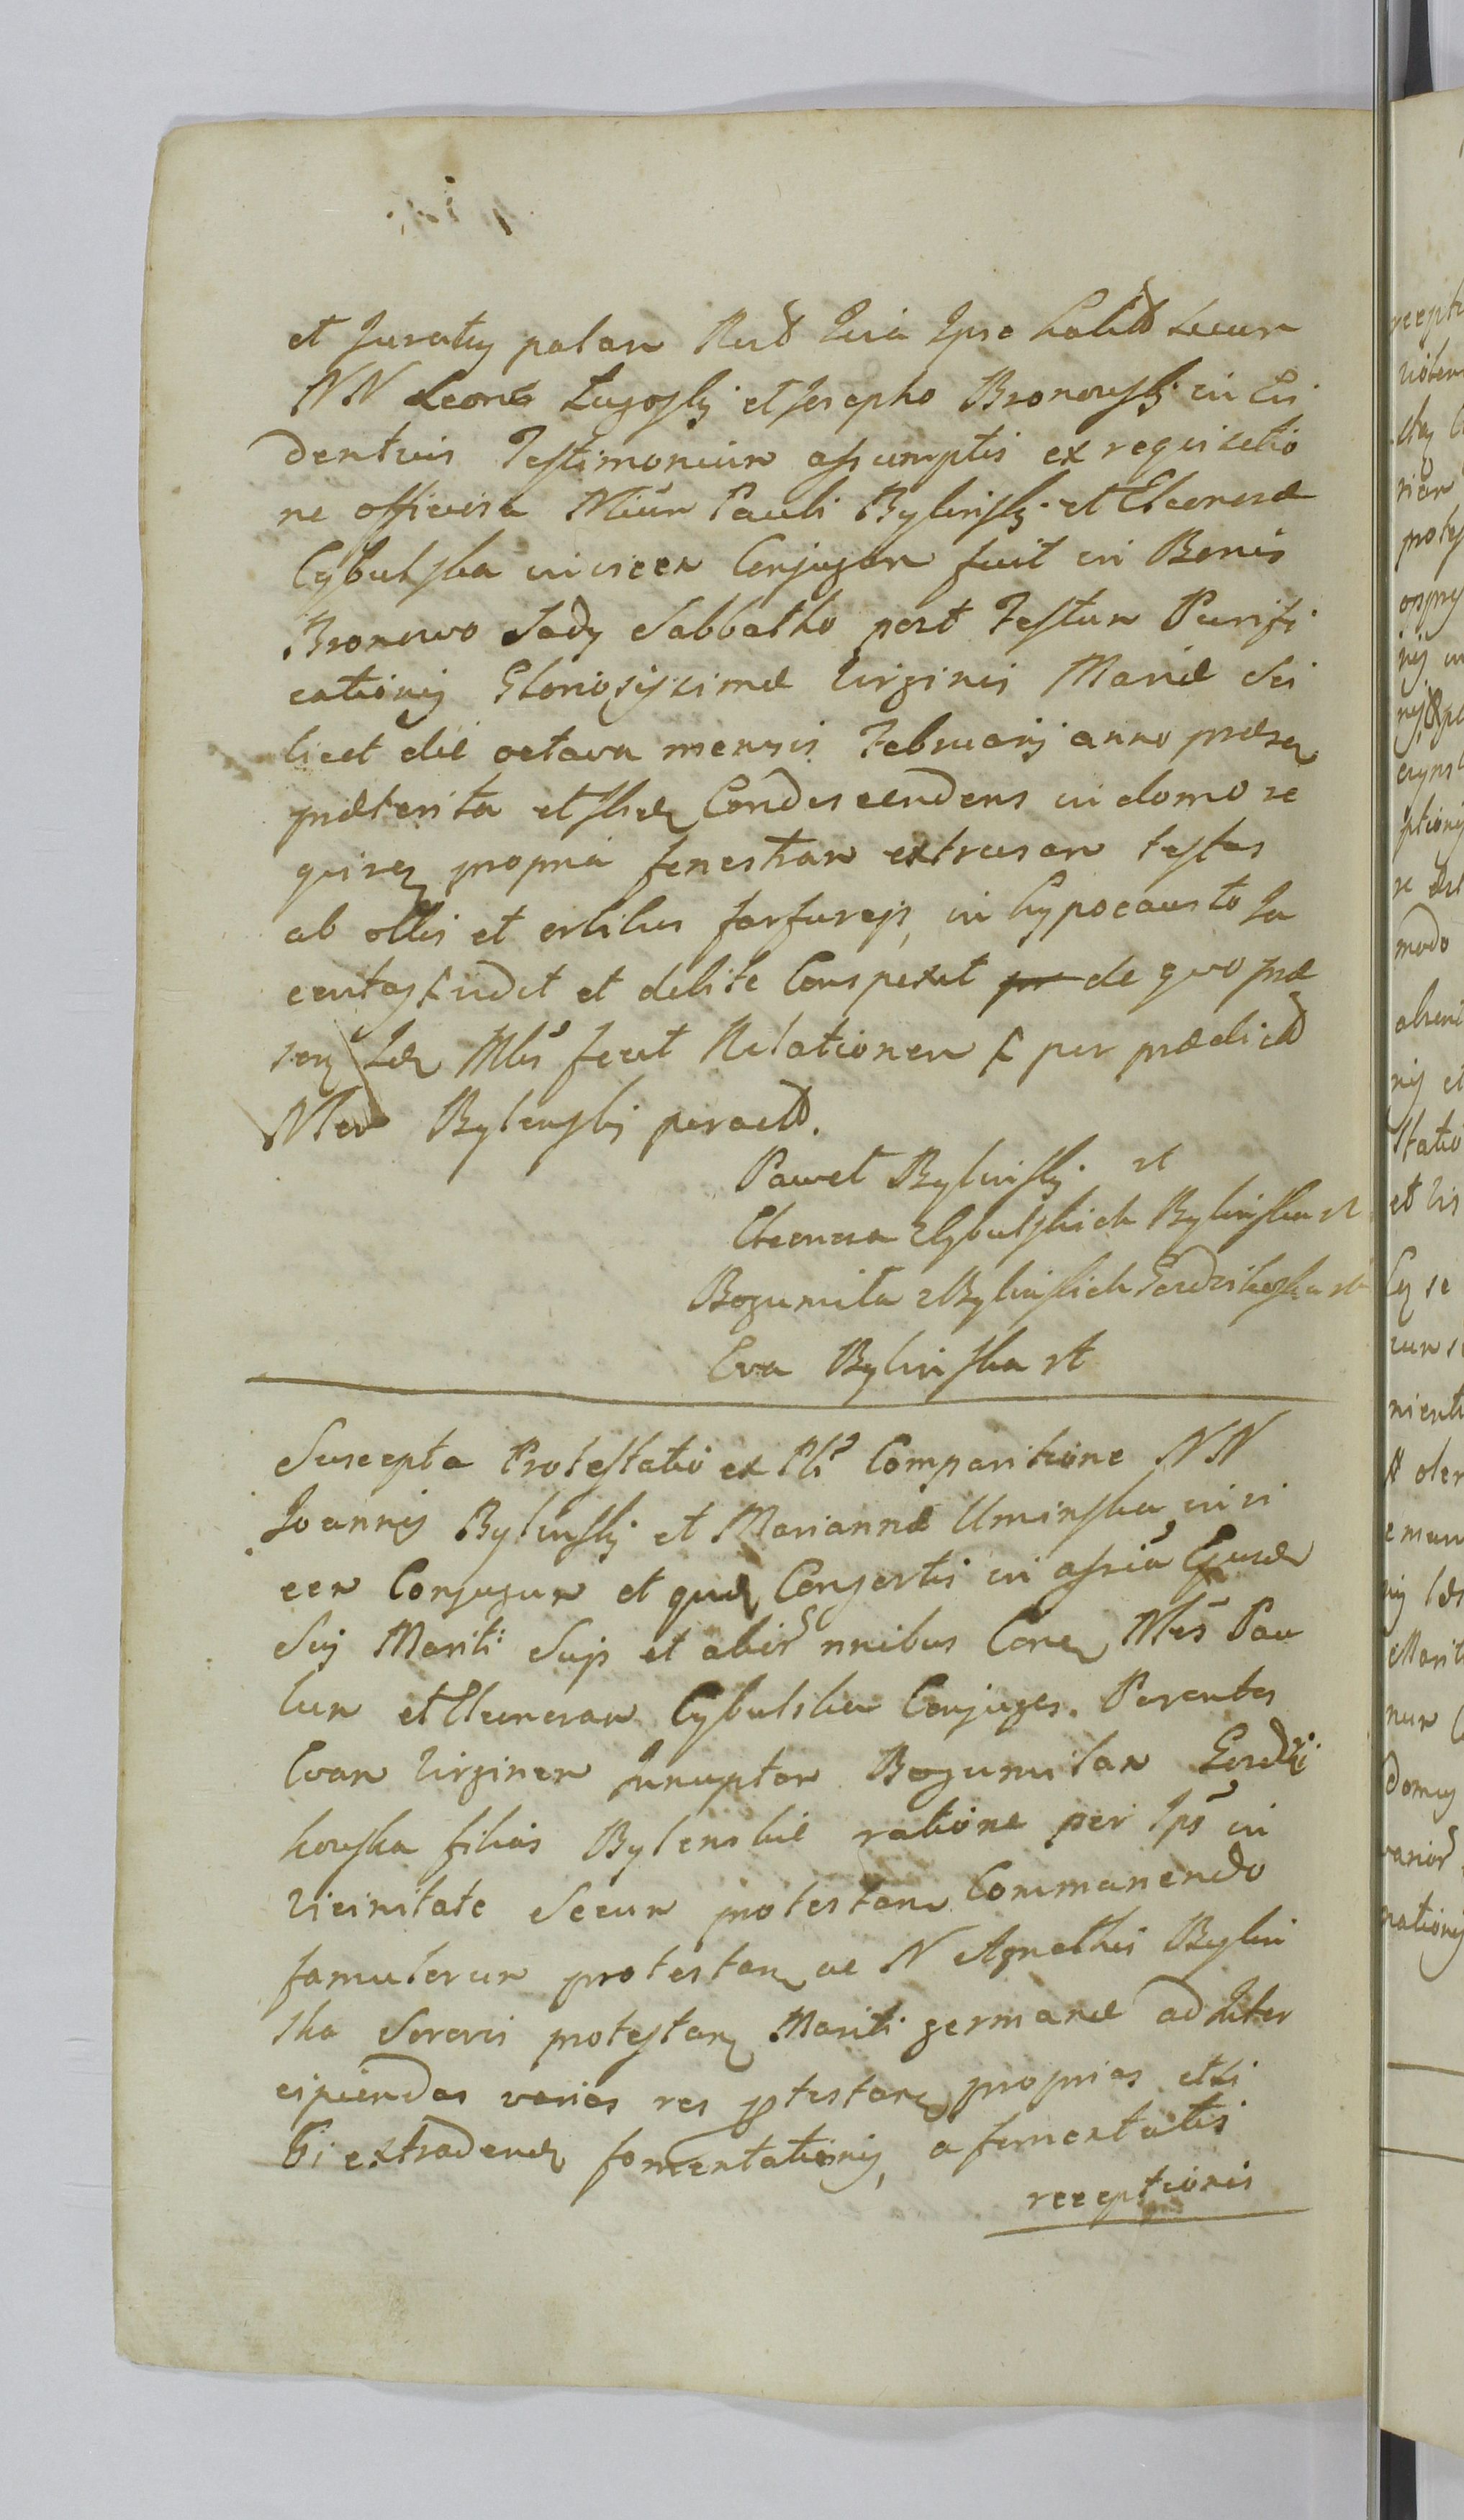 et Juratus palam Rud Quia Ipse habitd secum
NN Leone Lugoski et Josepho Bronowski in Evi
dentius Testimonium assumptis ex requisitio
ne officiosa Mcum Pauli Bylinski et Eleonoræ
Cybulska invicem Conjugum fuit in Bonis
Bronowo Sady Sabbatho post Festum Purifi
cationis Gloriosissimæ Virginis Mariæ Sci
licet die octava mensis Februarij anno præsen
præterita et Condescendens in domo re
quiren propria fenestram extrusam testas
ab ollis et orbibus farfureis, in hypocausto Ja
centas vidit et debite Conspexit de quo præ
sens Mtis fecit Relationem per prædictd
Mcd Bylinski peractd.
Paweł Bylinski st
Eleonora z Cybulskich Bylinska st
Bogumiła z Bylinskich Gordzikoska st
Eva Bylinska st
Suscepta Protestatio ex Pli Comparitione NN
Joannis Bylinski et Mariannæ Uminska invi
cem Conjugum et quæ Consortis in assia Ejusd
Sui Mariti Suis et alior nnibus Cone Mcos Pau
lum et Eleonoram Cybulska Conjuges. Parentes
Evam Virginem Innuptam Bogumilam Gordzi
kowska filias Bylenskie ratione per Ips in
Vicinitate Secum protestan Commanendo
famulorum protestan ac N Agnethis Bylin
ska Sororis protestan Mariti germanæ ad Inter
cipiendas varias res ptestan proprias et Si
bi extraden fomentationis, a fomentatis
receptionis